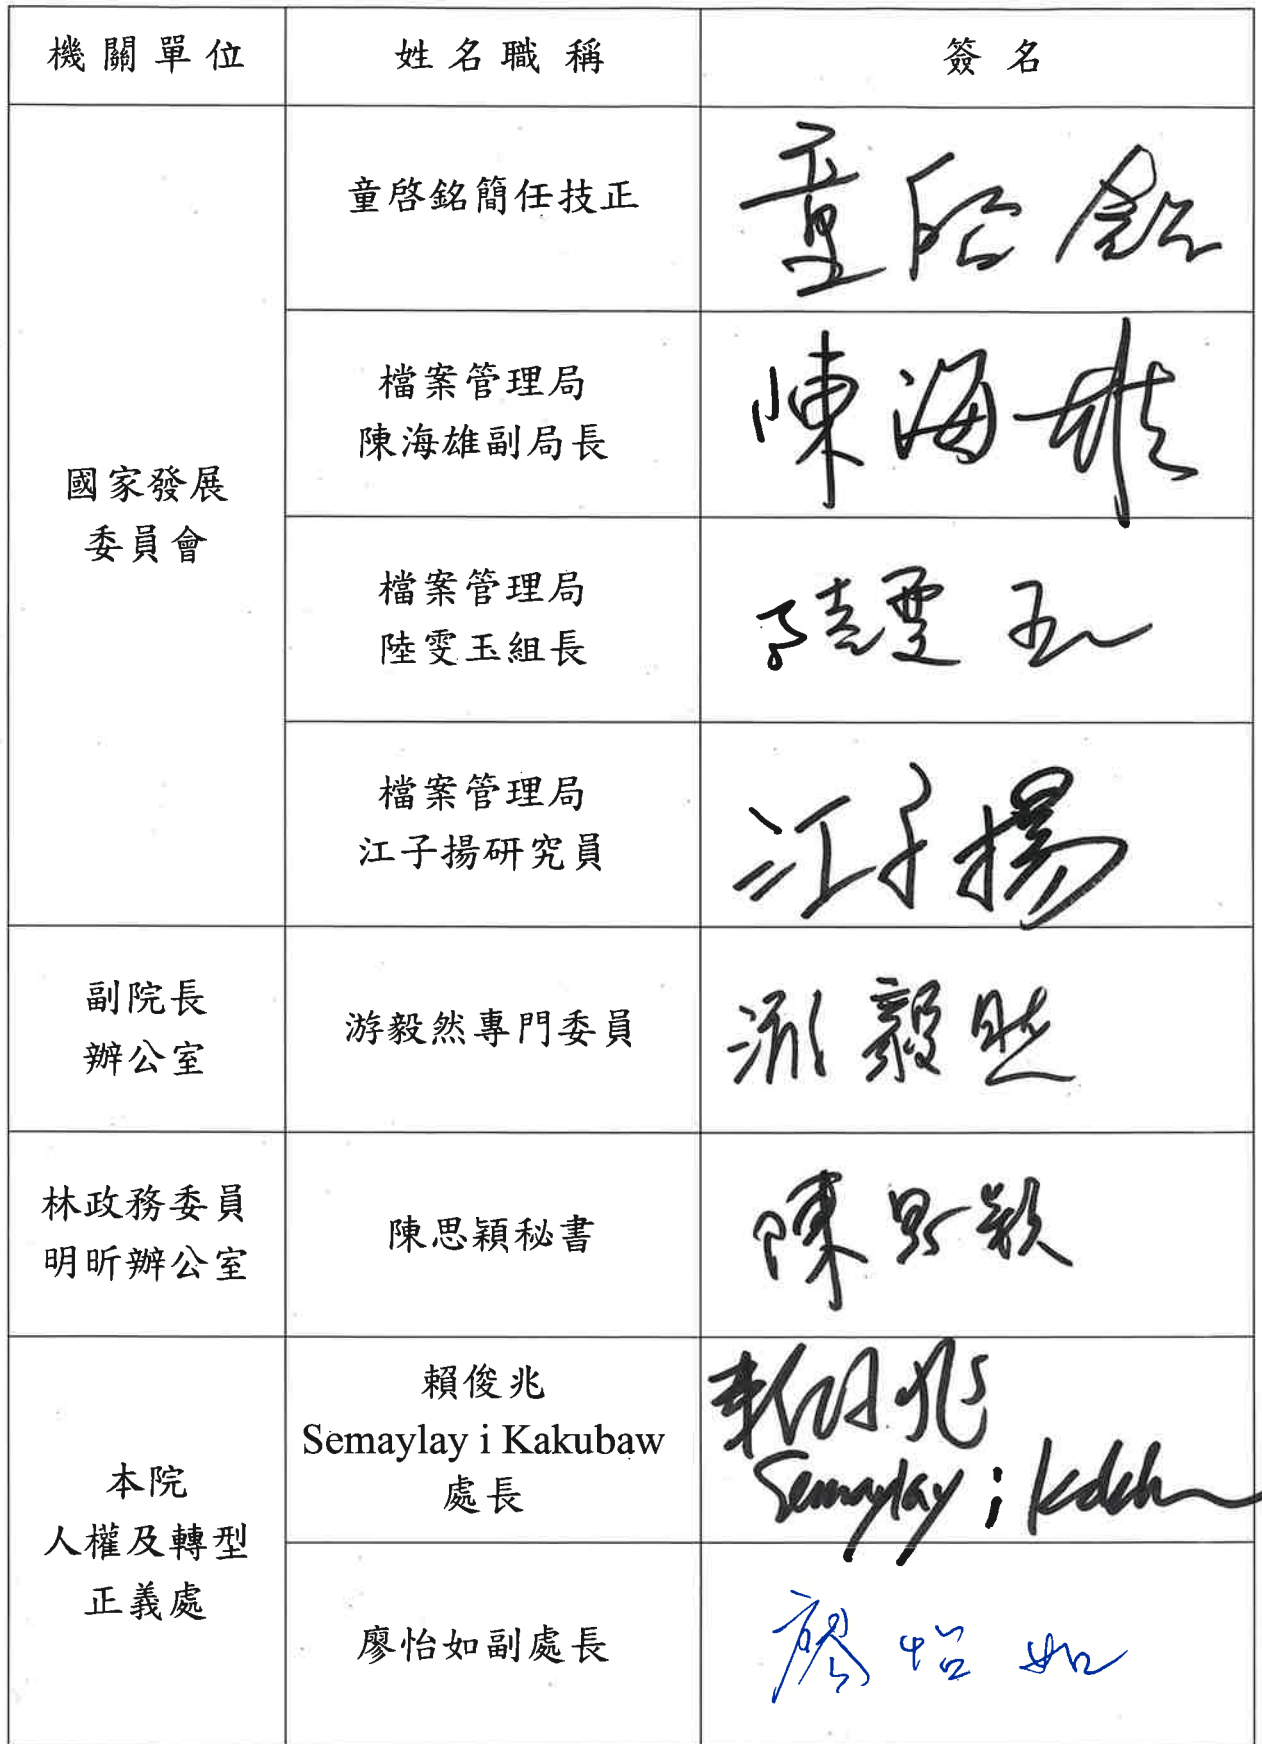 機關單位
姓名職稱
簽名
國家發展
委員會
童啓銘簡任技正
童啓銘
檔案管理局
陳海雄副局長
陳海雄
檔案管理局
陸雯玉組長
陸雯玉
檔案管理局
江子揚研究員
江子揚
副院長
辦公室
游毅然專門委員
游毅然
林政務委員
明昕辦公室
陳思穎秘書
陳思穎
本院
人權及轉型
正義處
賴俊兆
Semaylay i Kakubaw
處長
賴俊兆
Semaylay i
廖怡如副處長
廖怡如